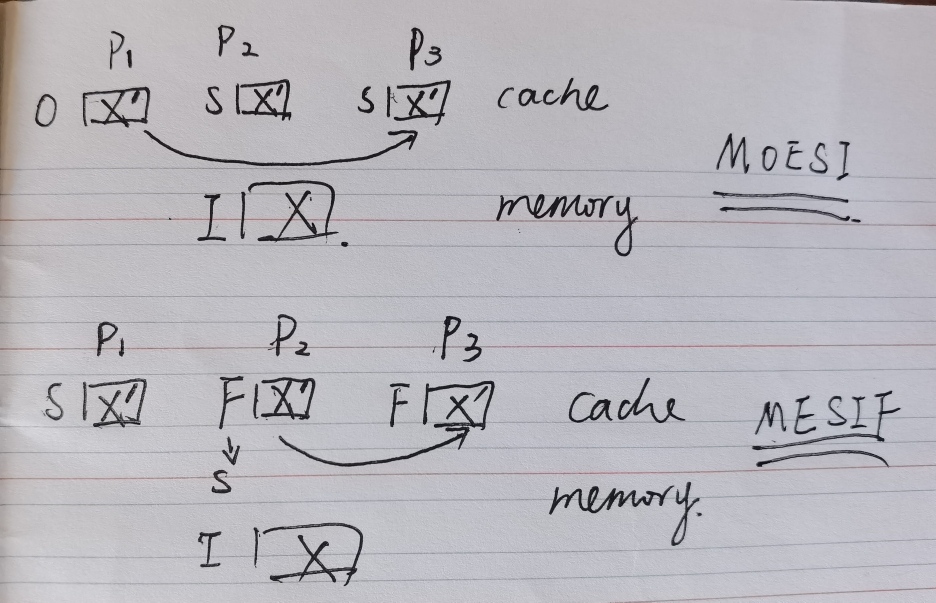 P1 P2 P3
O X' S X' S X' cache
MOESI
I X memory
P1 P2 P3
S X' F X' F X' cache MESIF
S
memory.
I X